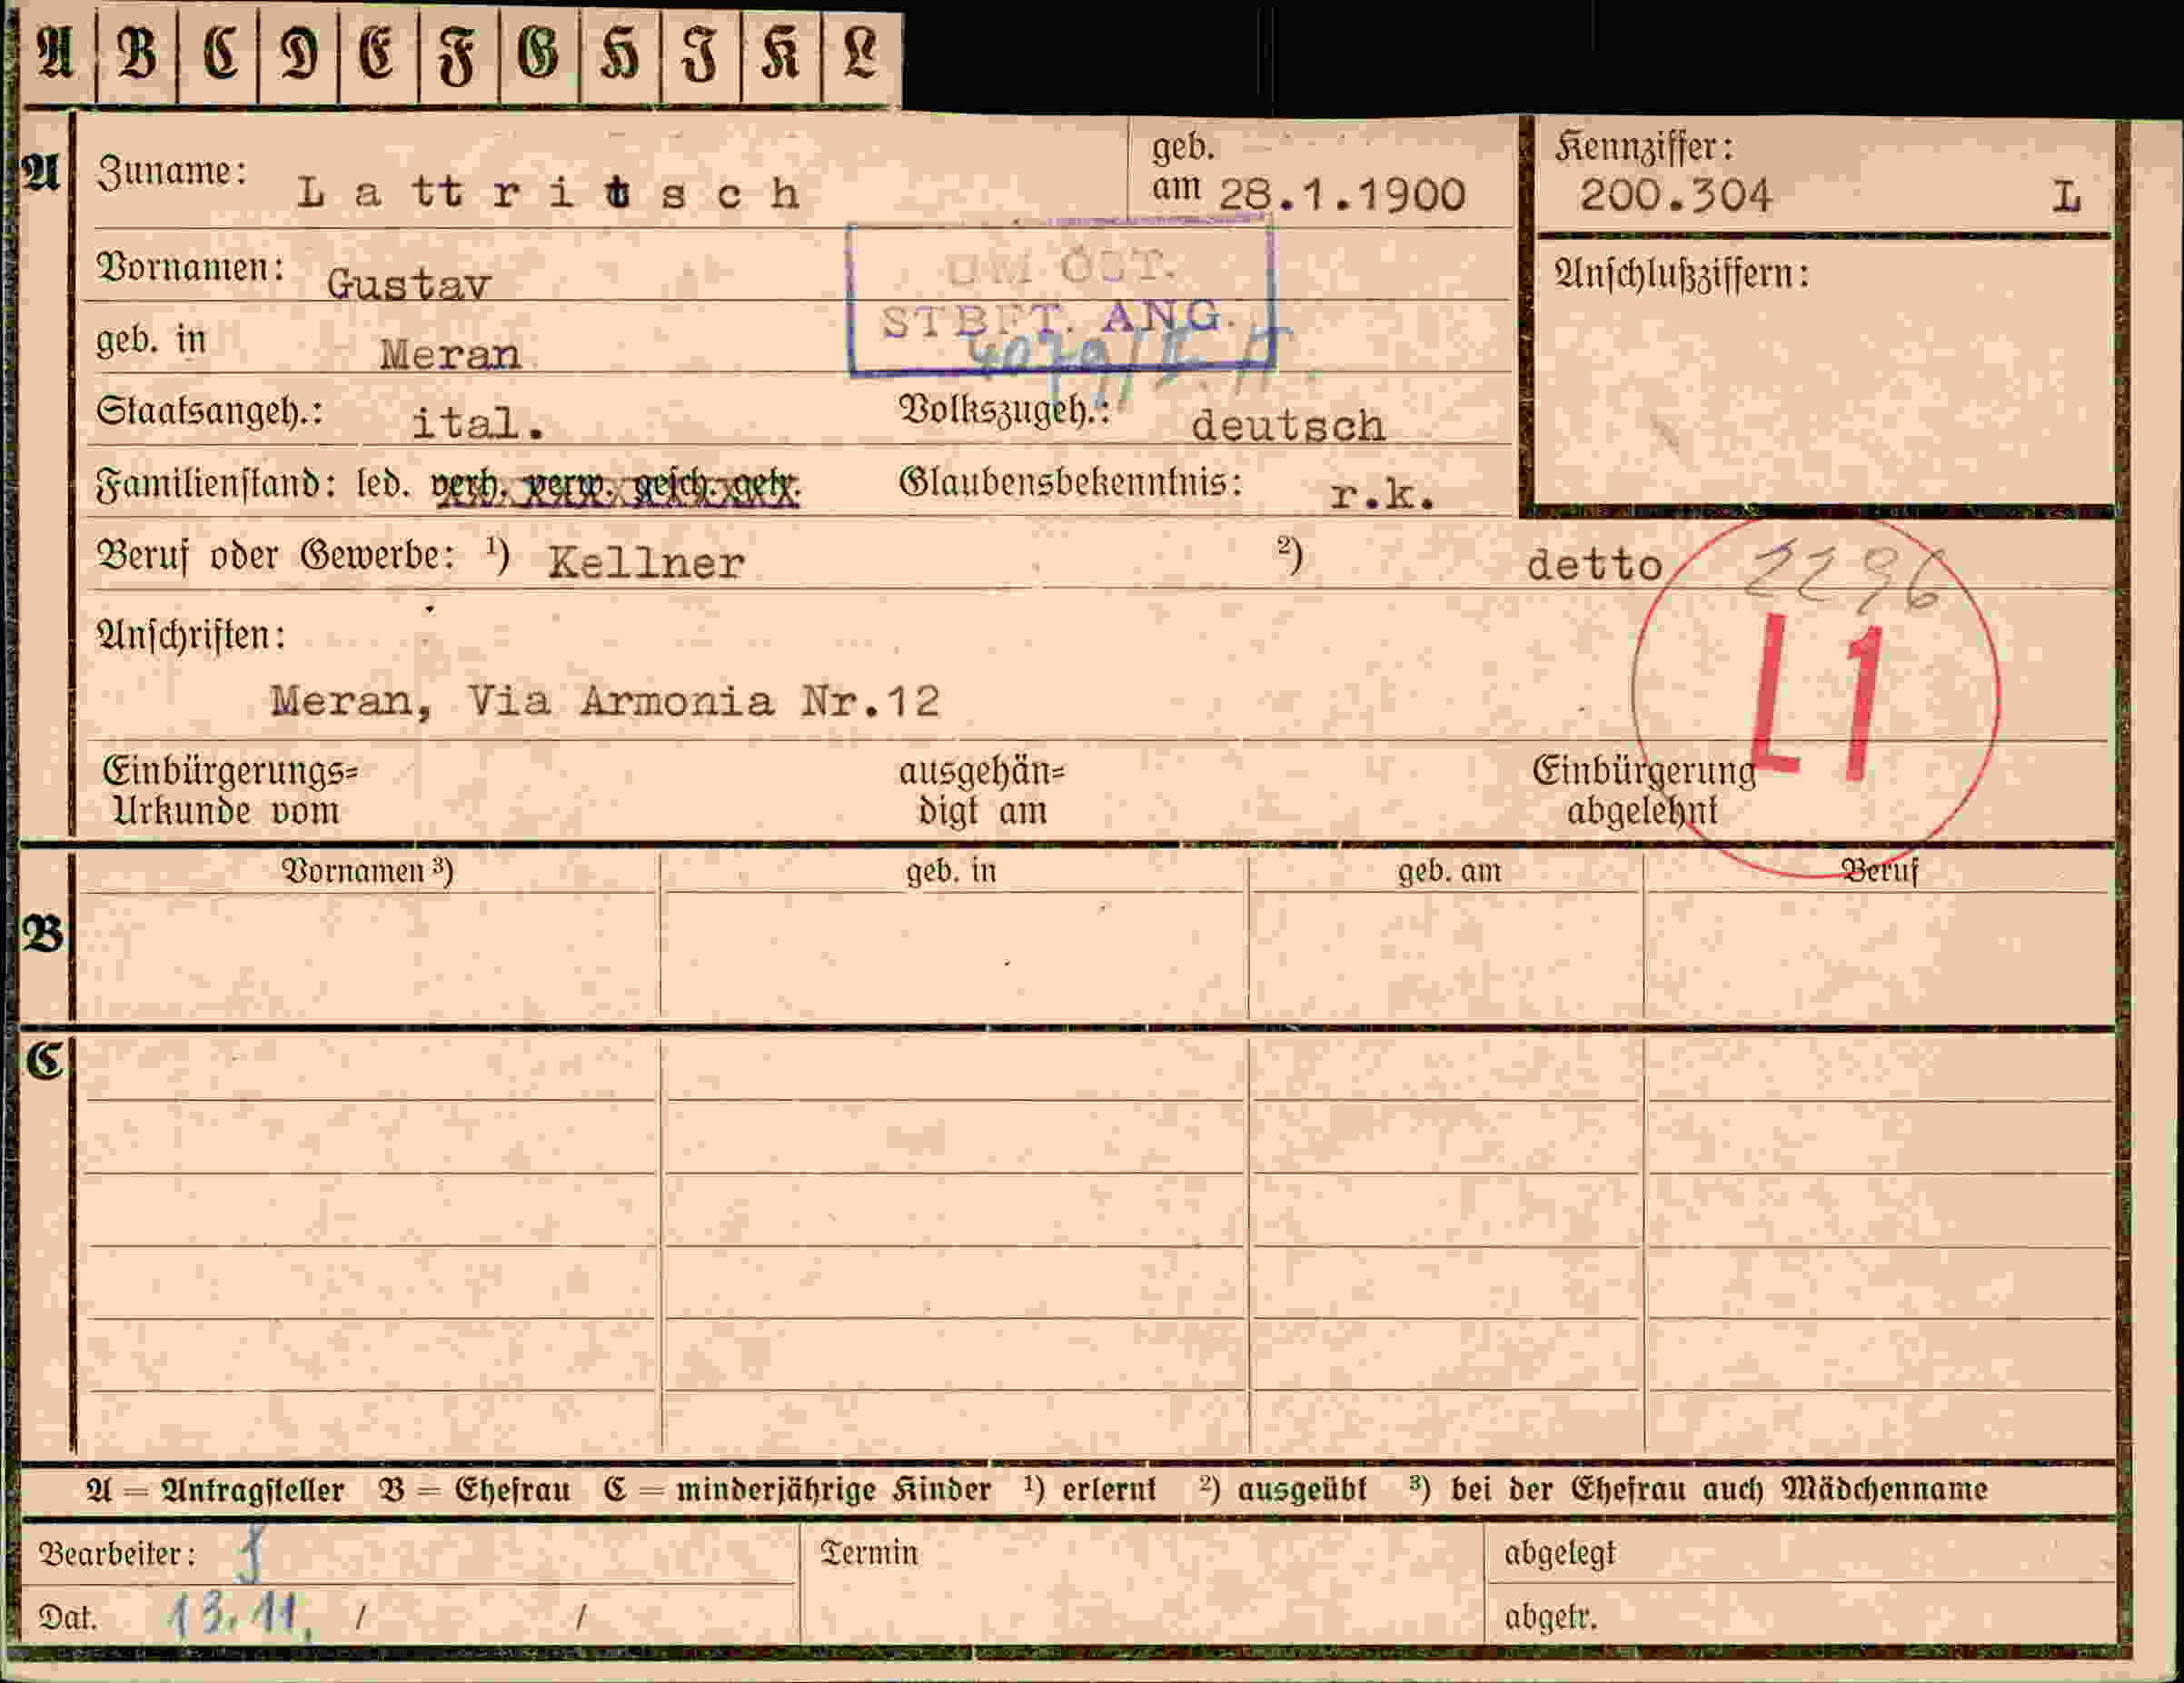 A B C D E F G H I K L
A Zuname: Lattritsch geb. am 28.1.1900 Kennziffer: 200.304 L
Vornamen: Gustav Anschlußziffern:
UM ÖST.
STBFT. ANG.
geb. in Meran
Staatsangeh.: ital. Volkszugeh.: deutsch
Familienstand: led. verh. verw. gesch. getr. Glaubensbekenntnis: r.k.
Beruf oder Gewerbe: ¹) Kellner ²) detto
2296
Anschriften:
L1
Meran, Via Armonia Nr.12
Einbürgerungs= ausgehän= Einbürgerung
Urkunde vom digt am abgelehnt
Vornamen ³) geb. in geb. am Beruf
B
C
A = Antragsteller B = Ehefrau C = minderjährige Kinder ¹) erlernt ²) ausgeübt ³) bei der Ehefrau auch Mädchenname
Bearbeiter: Termin abgelegt
Dat. 13.11. / / abgetr.